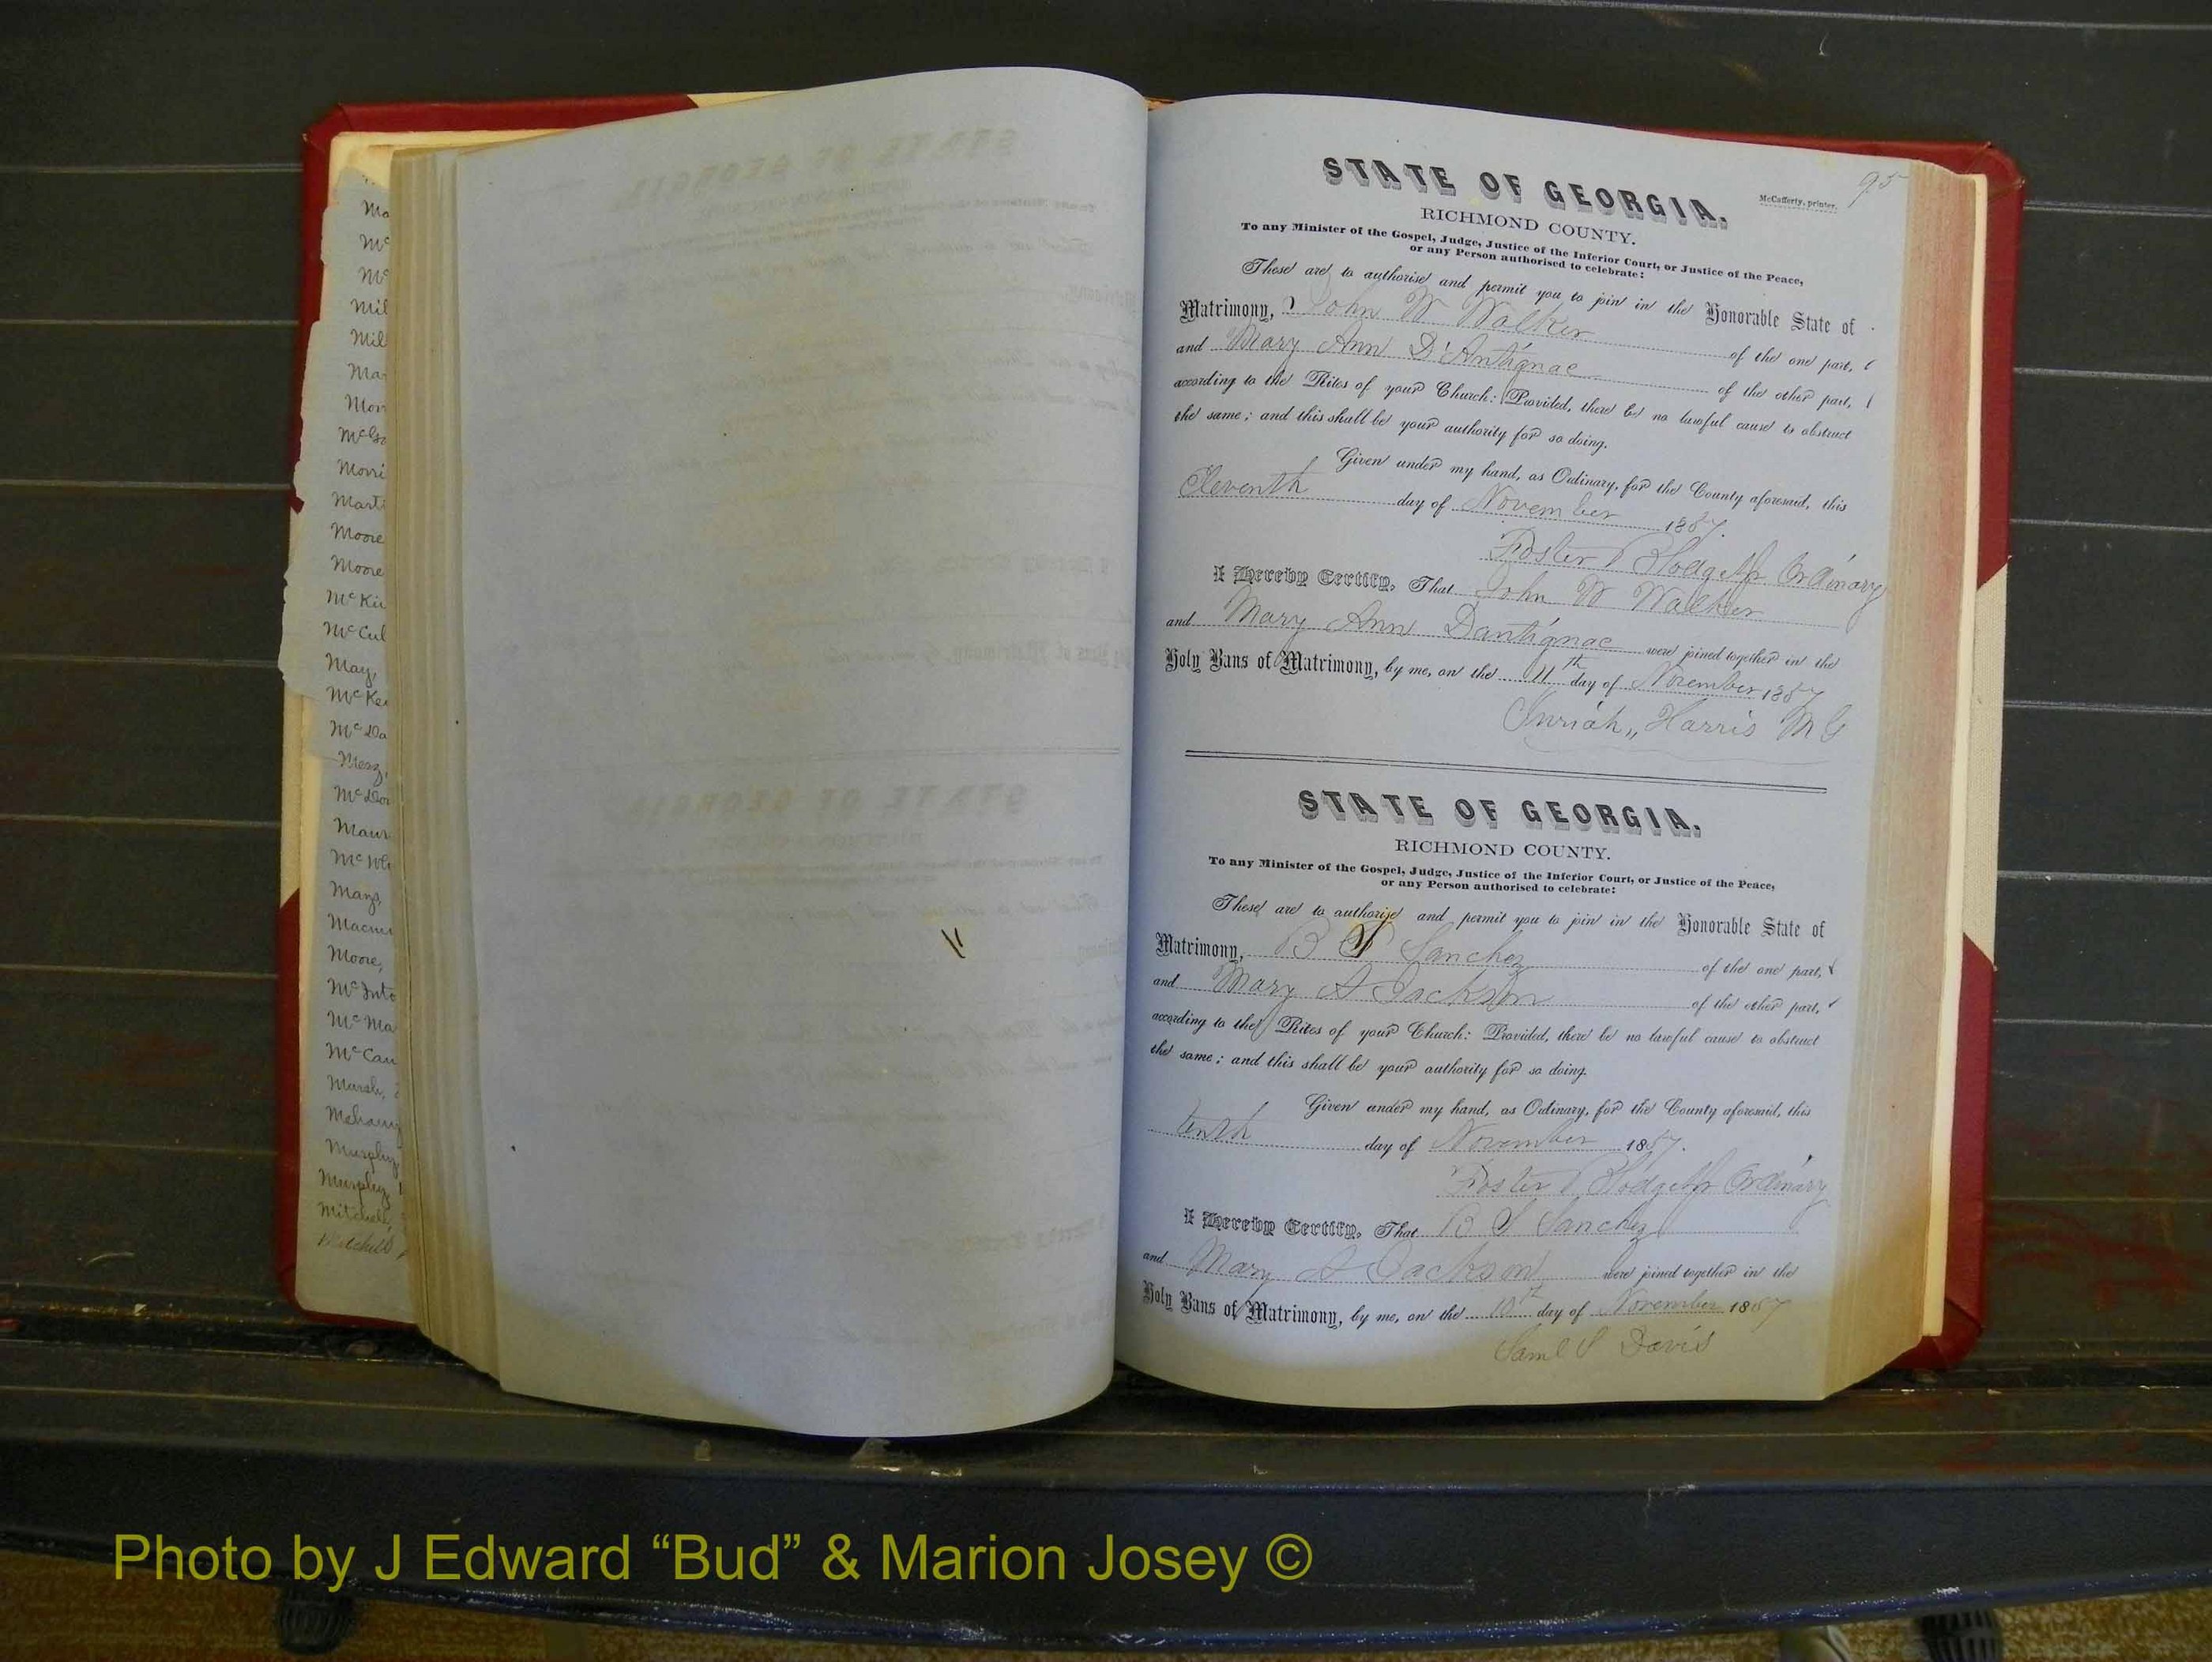 Ma
Mc
Mc
Mil
Mil
Mar
Mon
McGr
Morri
Marti
Moore
Moore
McKin
McCul
May,
McKe
McDa
Merz,
McDon
Maur
McWh
Mays
Macmu
Moore,
McInto
McMa
McCan
Marsh,
Mehany
Murphy
Murphy,
Mitchell,
Mitchell
95
McCafferty, printer.
STATE OF GEORGIA.
RICHMOND COUNTY.
To any Minister of the Gospel, Judge, Justice of the Inferior Court, or Justice of the Peace,
or any Person authorised to celebrate:
These are to authorise and permit you to join in the Honorable State of
Matrimony, John W Walker of the one part,
and Mary Ann D'Antignac of the other part,
according to the Rites of your Church: Provided, there be no lawful cause to obstruct
the same; and this shall be your authority for so doing.
Given under my hand, as Ordinary, for the County aforesaid, this
Eleventh day of November 1857.
Foster Blodget Jr Ordinary
I Hereby Certify, That John W Walker
and Mary Ann Dantignac were joined together in the
Holy Bans of Matrimony, by me, on the 11th day of November 1857
Harris MG
STATE OF GEORGIA.
RICHMOND COUNTY.
To any Minister of the Gospel, Judge, Justice of the Inferior Court, or Justice of the Peace,
or any Person authorised to celebrate:
These are to authorise and permit you to join in the Honorable State of
Matrimony, B S Sanchez of the one part,
and Mary A Jackson of the other part,
according to the Rites of your Church: Provided, there be no lawful cause to obstruct
the same; and this shall be your authority for so doing.
Given under my hand, as Ordinary, for the County aforesaid, this
tenth day of November 1857.
Foster Blodget Jr Ordinary
I Hereby Certify, That B S Sanchez
and Mary A Jackson were joined together in the
Holy Bans of Matrimony, by me, on the 10th day of November 1857
Saml S Davis
Photo by J Edward “Bud” & Marion Josey ©